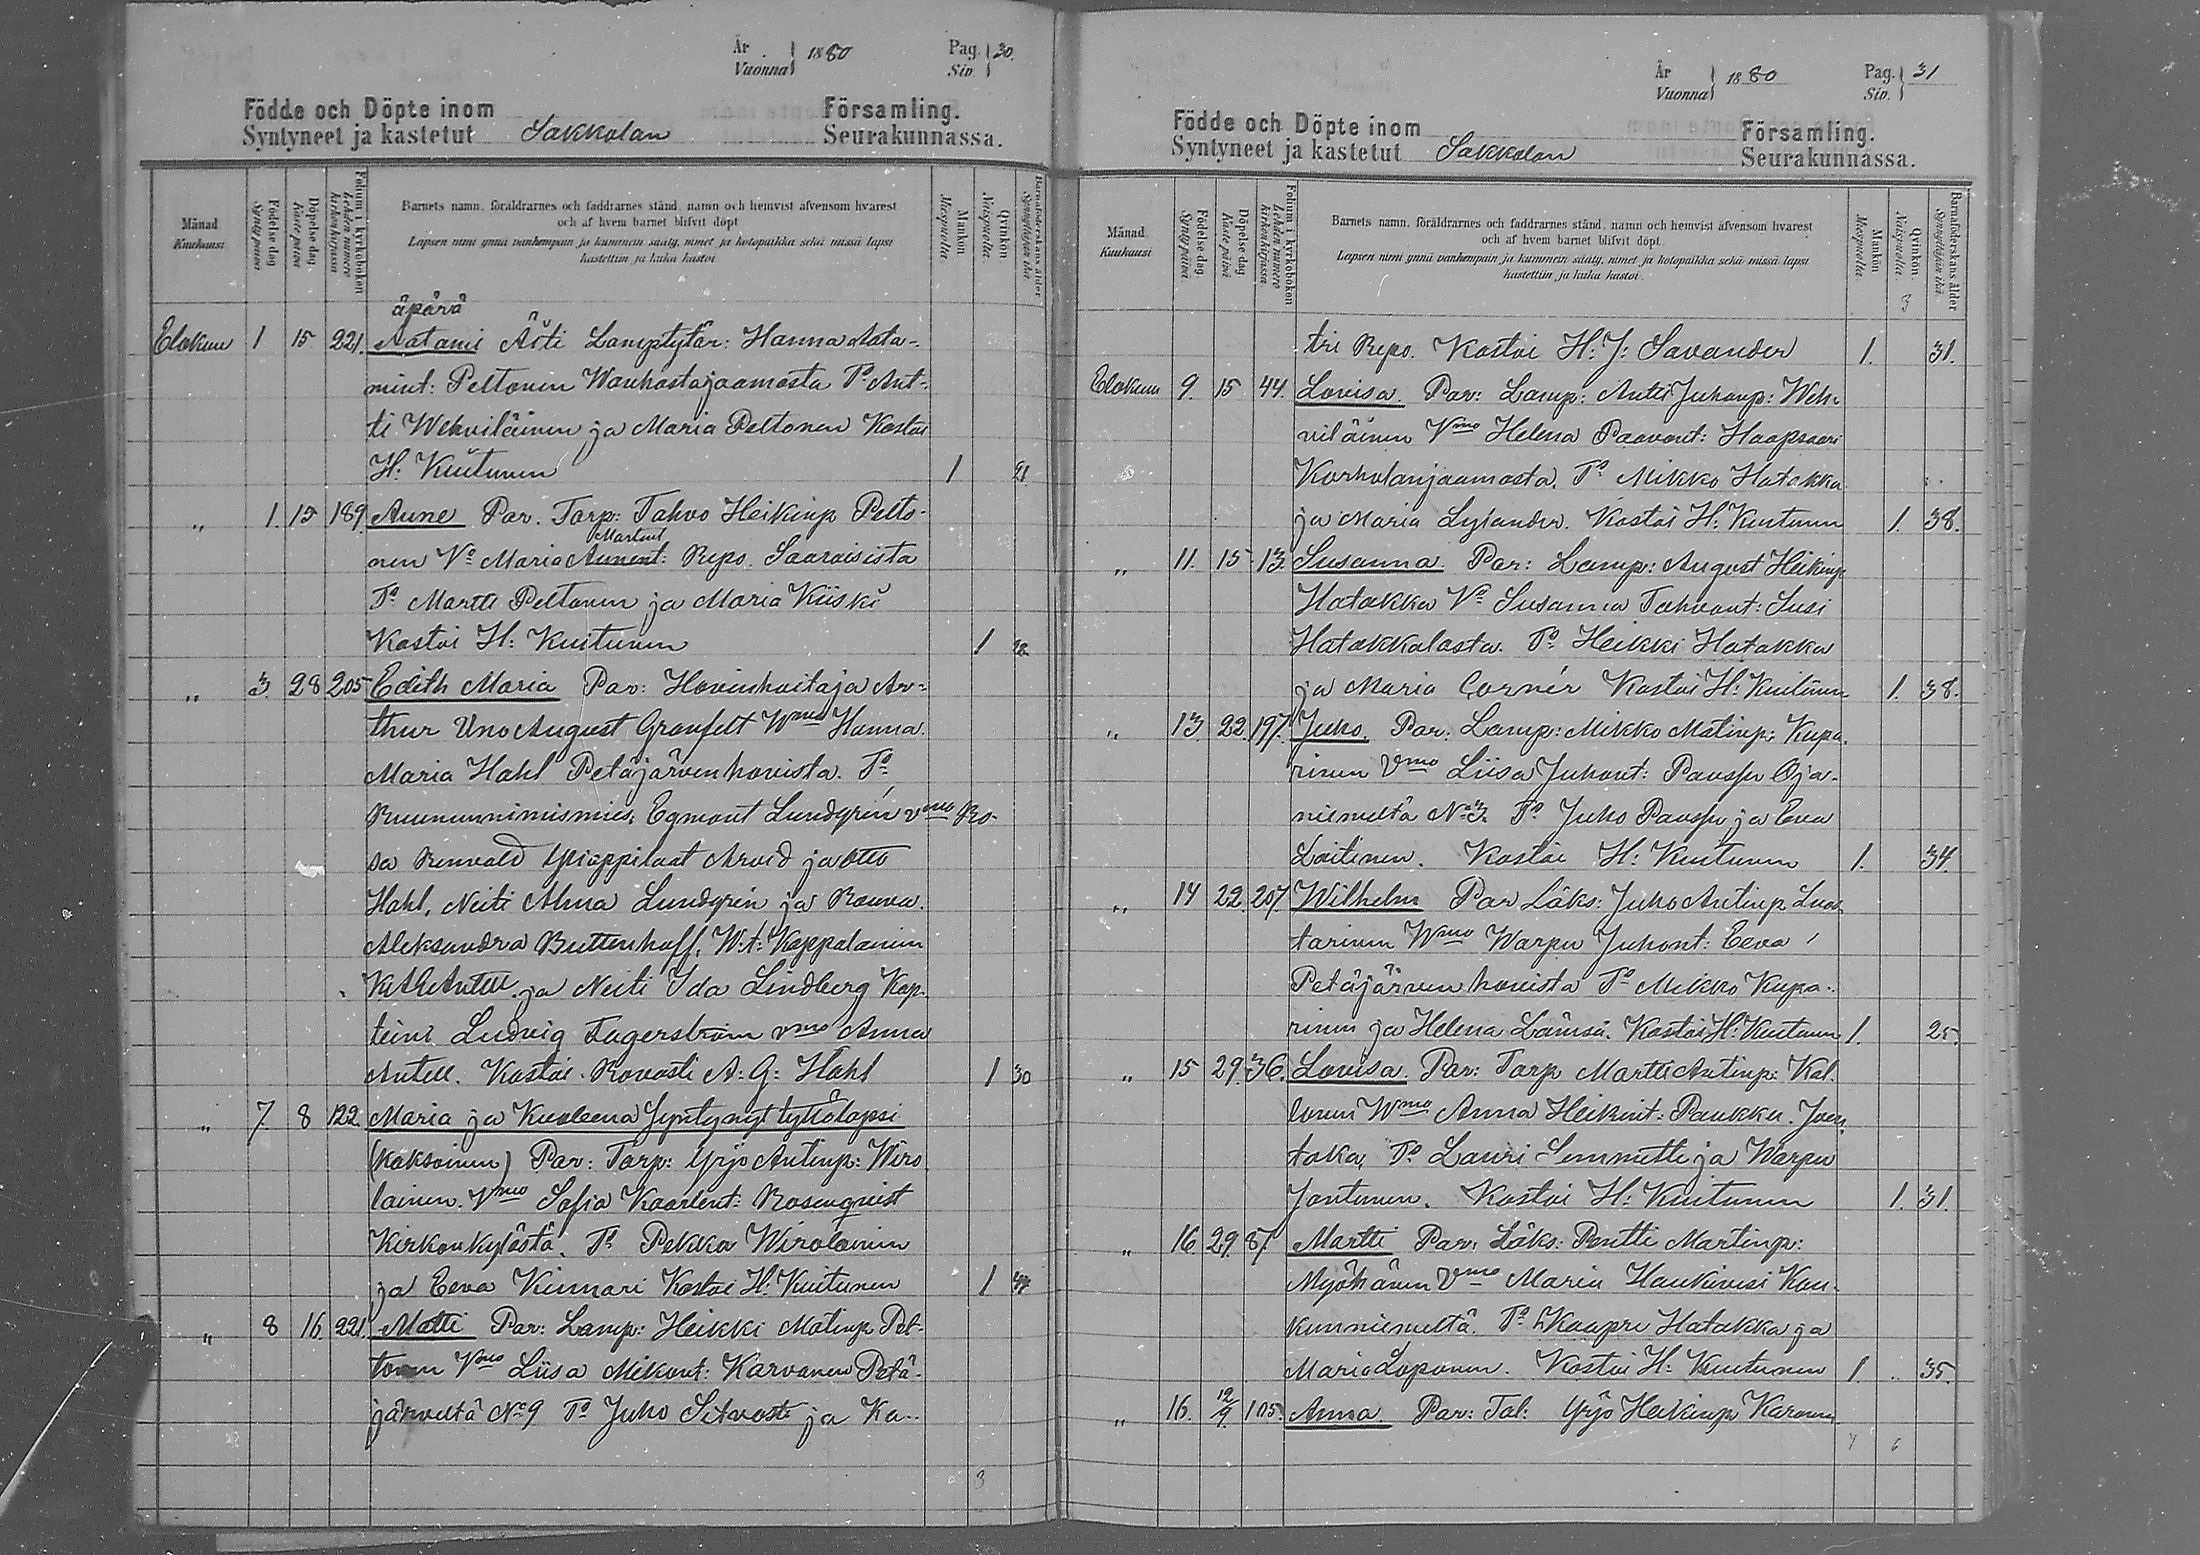 År Vuonna 1880 Pag. Siv. 30.
Födde och Döpte inom Församling.
Syntyneet ja kastetut Sakkolan Seurakunnassa.
Månad Kuukausi
Födelse dag Synty päivä
Döpelse dag Kaste päivä
Folium i kyrkoboken Lehden numero kirkonkirjassa
Barnets namn, föräldrarnes och faddrarnes stånd, namn och hemvist äfvensom hvarest
och af hvem barnet blifvit döpt
Lapsen nimi ynnä vanhempain ja kummein sääty, nimet ja kotopaikka sekä missä lapsi
kastettiin ja kuka kastoi
Mankön Miespuolia.
Qvinkön Naispuolia.
Barnaföderskans ålder Synnyttäjän ikä
äpärä
Elokuu 1 15 221. Aatami Äiti Lamptytär: Hanna Aata-
mint: Peltonen Wanhastajaamasta To Ant-
ti Wehviläinen ja Maria Peltonen Kastoi
H: Kuitunen 1 21
" 1. 15 189. Aune Par. Torp: Tahvo Heikinp Pelto-
Martint
nen Vo Maria Aunent: Repo. Saaroisista
To Martti Peltonen ja Maria Kiiski
Kastoi H: Kuitunen 1
" 3 28 205 Edith Maria Par: Hovinhoitaja Ar-
thur Uno August Granfelt Wmo Hanna
Maria Hahl Petäjärven hovista. To
Ruununnimismies. Egmont Lundgrén vmo Ro-
sa Renvald Ylioppilaat Arvid ja Otto
Hahl, Neiti Alma Lundgrén ja Rouva
Aleksandra Buttenhoff, W:t: Kappalainen
Antell ja Neiti Ida Lindberg Kap-
teini Ludvig Fagerström vmo Anna
Antell. Kastoi Rovasti A: G: Hahl 1 30
" 7. 8 122. Maria ja Kuolleena Syntynyt tyttölapsi
(kaksoinen) Par: Torp: Yrjö Antinp: Wiro
lainen. Vmo Sofia Kaarlent: Rosenqvist
Kirkonkylästä. To Pekka Wirolainen
ja Eeva Kinnari Kastoi H: Kuitunen 1
" 8 16. 221. Matti Par: Lamp: Heikki Matinp Pel-
tonen Vmo Liisa Mikont: Karvanen Petä-
järveltä No 9 To Juho Sitvosti ja Ka-
3
År Vuonna 1880 Pag. Siv. 31
Födde och Döpte inom Församling.
Syntyneet ja kastetut Sakkolan Seurakunnassa.
Månad Kuukausi
Födelse dag Synty päivä
Döpelse dag Kaste päivä
Folium i kyrkoboken Lehden numero kirkonkirjassa
Barnets namn, föräldrarnes och faddrarnes stånd, namn och hemvist äfvensom hvarest
och af hvem barnet blifvit döpt.
Lapsen nimi ynnä vanhempain ja kummein sääty, nimet ja kotopaikka sekä missä lapsi
kastettiin ja kuka kastoi.
Mankön Miespuolia.
Qvinkön Naispuolia.
Barnaföderskans ålder Synnyttäjän ikä.
3
tri Repo. Kastoi H: J: Savander 1. 31.
Elokuu 9. 15 44. Lovisa Par: Lamp: Antti Juhonp: Weh-
viläinen Vmo Helena Paavont: Haapsaari
Korholanjaamasta. To Mikko Hatakka
ja Maria Sylander. Kastoi H: Kuitunen 1. 38.
" 11. 15 13. Susanna Par: Lamp: August Heikinp
Hatakka Vo Susanna Tahvont: Susi
Hatakkalasta. To Heikki Hatakka
ja Maria Cornér Kastoi H: Kuitunen 1. 38.
" 13 22. 197. Juho. Par: Lamp: Mikko Matinp: Kupa-
rinen Vmo Liisa Juhont: Paussu Oja-
niemeltä No 3. To Juho Paussu ja Eeva
Loitinen. Kastoi H: Kuitunen 1. 34.
" 14 22. 207. Wilhelm Par Läks: Juho Antinp Luos-
tarinen Wmo Warpu Juhont: Eeva
Petäjärven hovista To Mikko Kupa-
rinen ja Helena Lämsä. Kastoi H: Kuitunen 1. 25.
" 15 29. 36. Lovisa. Par: Torp Martti Antinp: Kal-
lonen Wmo Anna Heikint: Paukku. Joen-
taka, To Lauri Semmitti ja Warpu
Jantunen. Kastoi H: Kuitunen 1. 31.
" 16 29. 87. Martti Par: Läks: Pentti Martinp:
Myöhänen Vmo Maria Haukivesi Kau-
kunniemeltä. To Kaapre Hatakka ja
Maria Loponen. Kastoi H: Kuitunen 1. 35.
" 16. 12/9. 105. Anna Par: Tal: Yrjö Heikinp Karonen
4 6